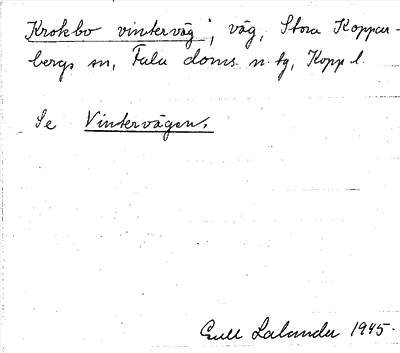 Krokbo vinterväg; väg, Stora Koppar-
bergs sn, Falu doms. n. tg, Kopp l.
Se Vintervägen.
Gull Lalander 1945.